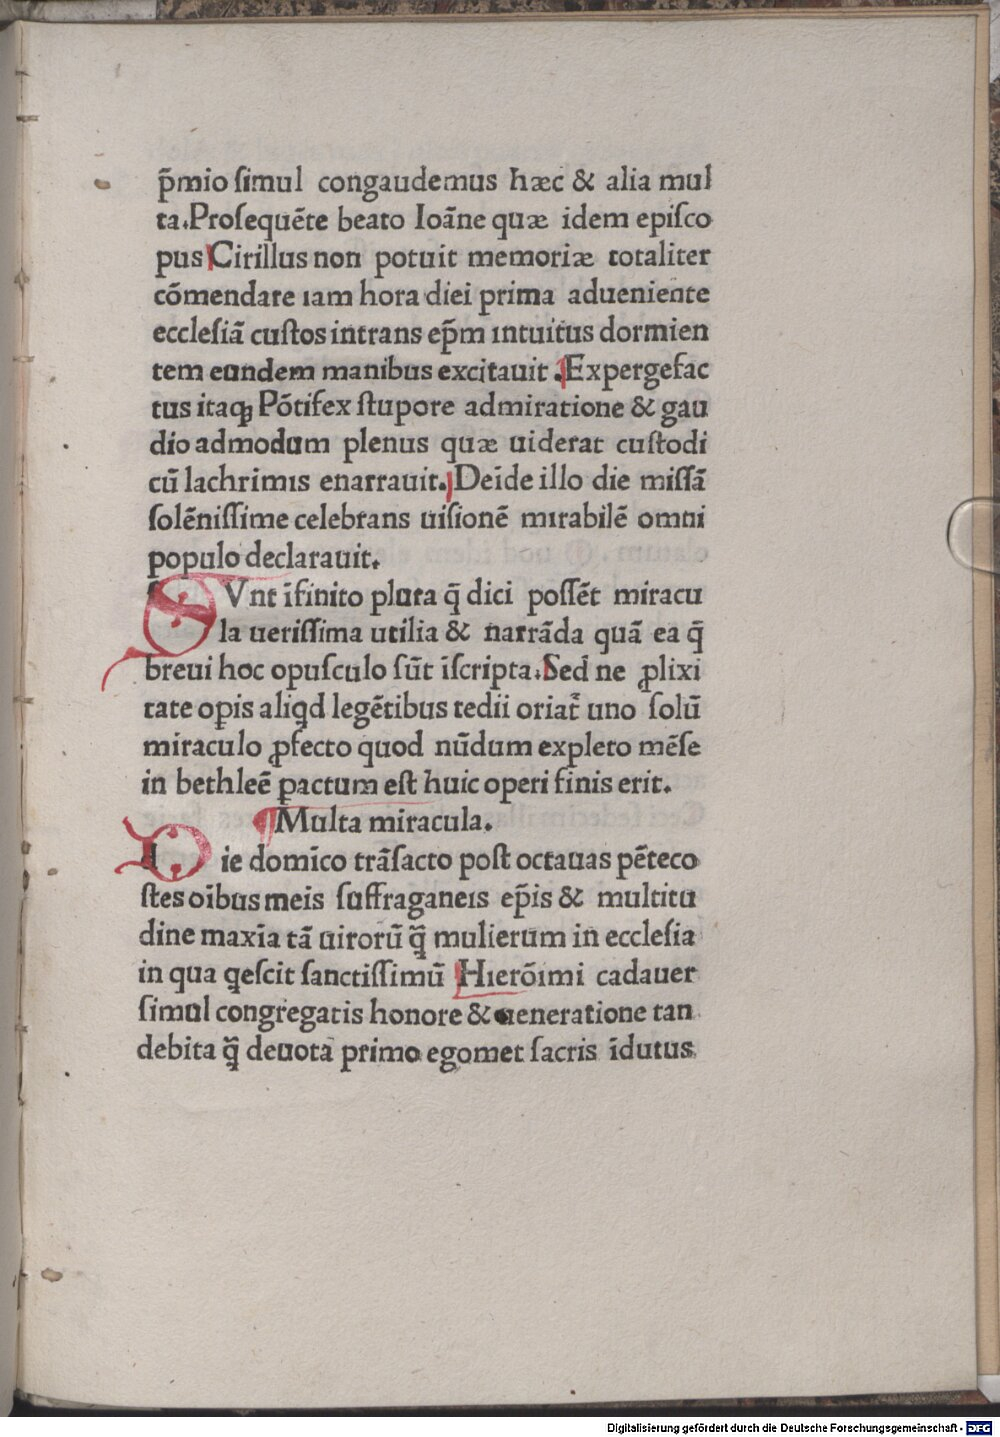 p̄mio ſimul congaudemus hæc & alia mul
ta.Proſequẽte beato Ioãne quæ idem epiſco
pus Cirillus non potuit memoriæ totaliter
cõmendare iam hora diei prima adueniente
eccleſiã cuſtos intrans ep̄m intuitus dormien
tem eundem manibus excitauit .Expergefac
tus itaqꝫ Põtifex ſtupore admiratione & gau
dio admodum plenus quæ uiderat cuſtodi
cũ lachrimis enarrauit. Deĩde illo die miſſã
ſolẽniſſime celebrans uiſionẽ mirabilẽ omni
populo declarauit.
SVnt ĩfinito plura q̃ dici poſſẽt miracu
la ueriſſima utilia & narrãda quã ea q̃
breui hoc opuſculo ſũt ĩſcripta.Sed ne ꝓlixi
tate oꝑis aliꝗd legẽtibus tedii oriat᷑ uno ſolũ
miraculo ꝓfecto quod nũdum expleto mẽſe
in bethleẽ ꝑactum eſt huic operi finis erit.
¶Multa miracula.
die domĩco trãſacto poſt octauas pẽteco
ſtes oĩbus meis ſuffraganeis ep̄is & multitu
dine maxĩa tã uirorũ q̃ꝫ mulierum in eccleſia
in qua ꝗeſcit ſanctiſſimũ Hierõimi cadauer
ſimul congregatis honore & ueneratione tan
debita q̃ꝫ deuota primo egomet ſacris ĩdutus
Digitalisierung gefördert durch die Deutsche Forschungsgemeinschaft - DFG